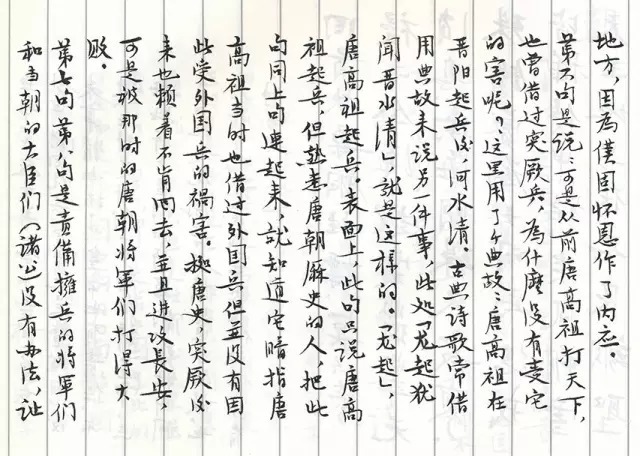 地方,因為僕固怀恩作了内应。
第六句是说:可是从前唐高祖打天下,
也曾借过突厥兵,為什麽没有受它
的害呢?这里用了个典故:唐高祖在
晋阳起兵后,河水清。古典诗歌常借
用典故来说另一件事,此处「龙起犹
闻晋水清」,就是这樣的。「龙起」,
唐高祖起兵。表面上,此句只说唐高
祖起兵,但熟悉唐朝厤史的人,把此
句同上句連起来,就知道它暗指唐
高祖当时也借过外国兵但並没有因
此受外国兵的禍害。据唐史,突厥后
来也赖着不肯回去,並且進攻長安,
可是被那时的唐朝将军们打得大
败。
第七句第八句是責備擁兵的将軍们
和当朝的大臣们(诸公)没有办法,让